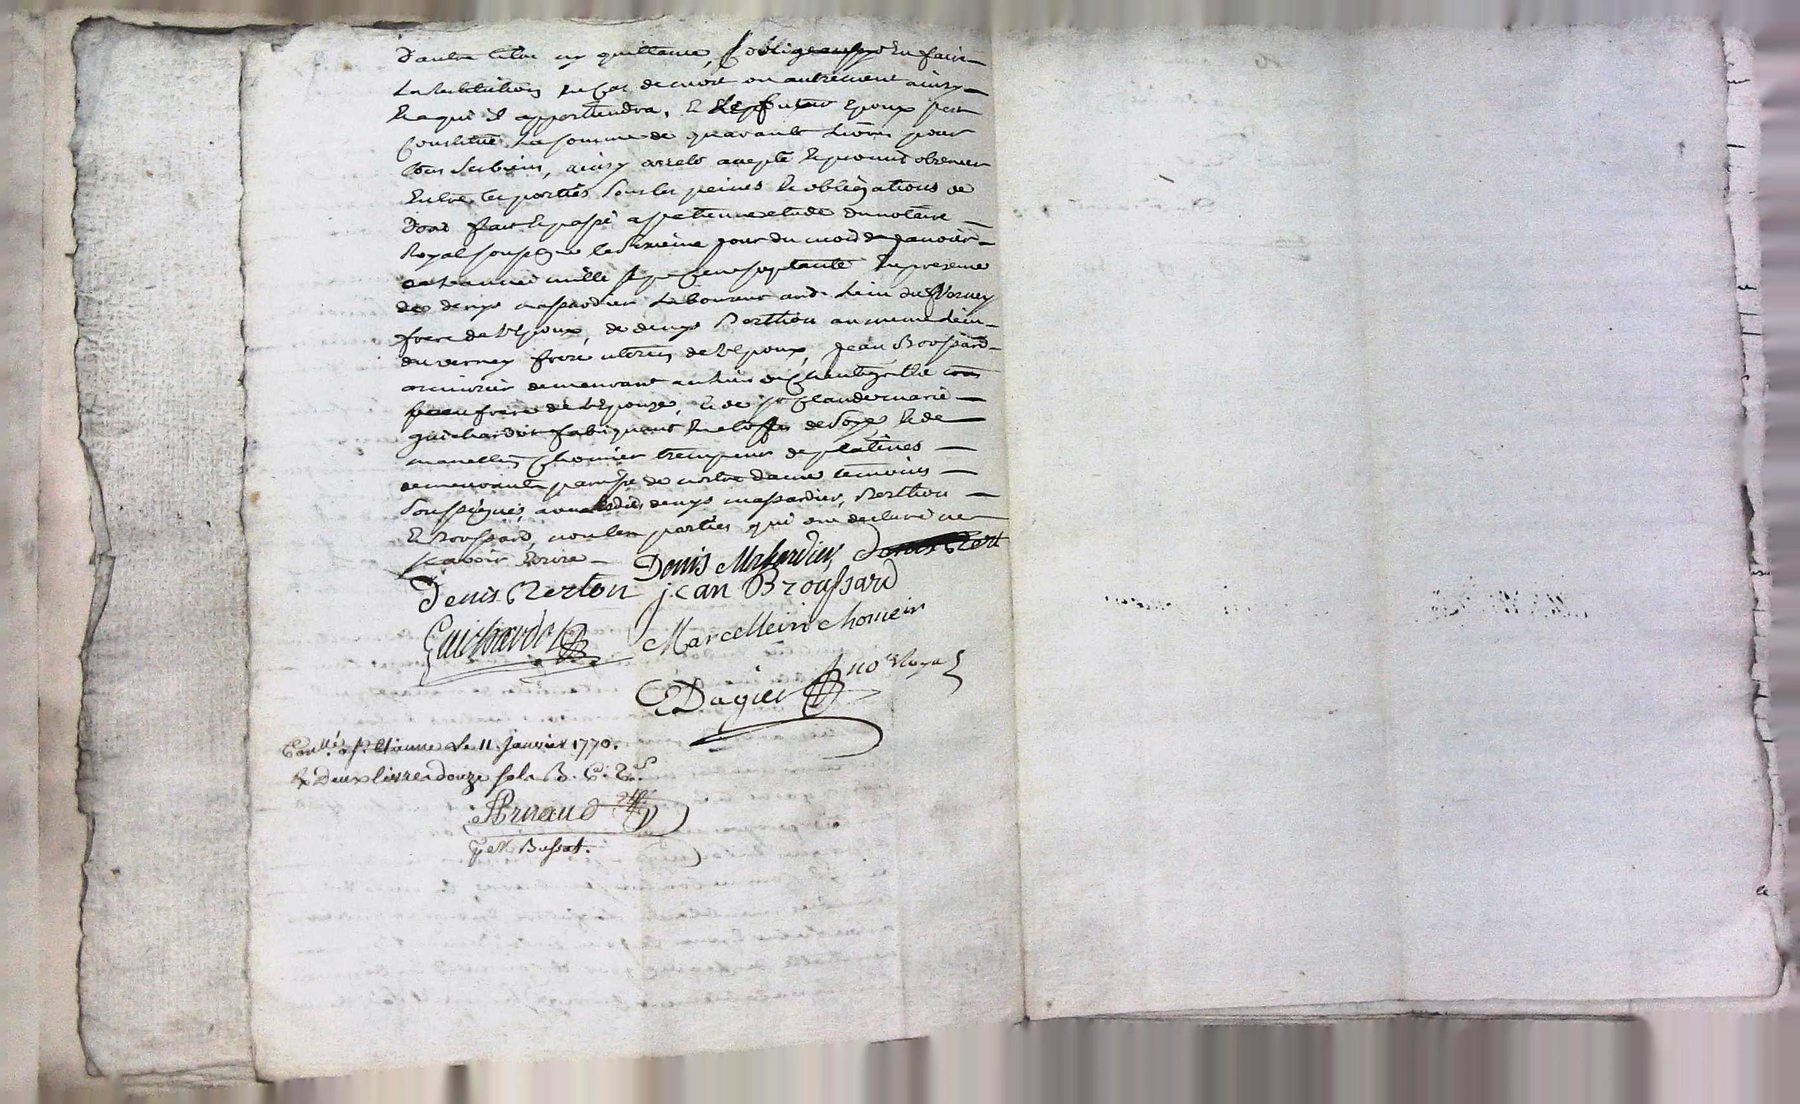 d'autre titre ny quittance, s'obligeant d'en faire
la restitution en cas de mort ou autrement ainsy
et a qui il appartiendra, et led. futur epoux s'est
constitué la somme de quarante livres pour
tous ses biens, ainsy arreté accepté et promis observer
entre les parties sous les peines et obligations de
droit fait et passé a St etienne etude du notaire
Royal soussigné le sixieme jour du mois de janvier
année mille sept cent septante En presence
de denys massardier laboureur aud. lieu du Vernay
frere de l'epoux, de denys Berthon au meme lieu
du vernay frere uterin de l'epoux, jean Broussard
armurier demeurant au lieu de
beaufrere de l'epouse, et de Sr claude marie
guichardot fabriquant en etoffes de soye, et de
marcellin chomier trempeur de platines
demeurants paroisse de notre dame temoins
soussignés avec lesdits denys massardier, Berthon
et Broussard, non les parties qui ont declaré ne
scavoir ecrire
Denis Massardier Denis Bert
Denis Berton jean Broussard
Guichardot Marcellein chomein
Dagier nore Royal
Conllé a St. Etienne le 11. janvier 1770.
R Deux livres douze sols
Arnaud
Bussat.